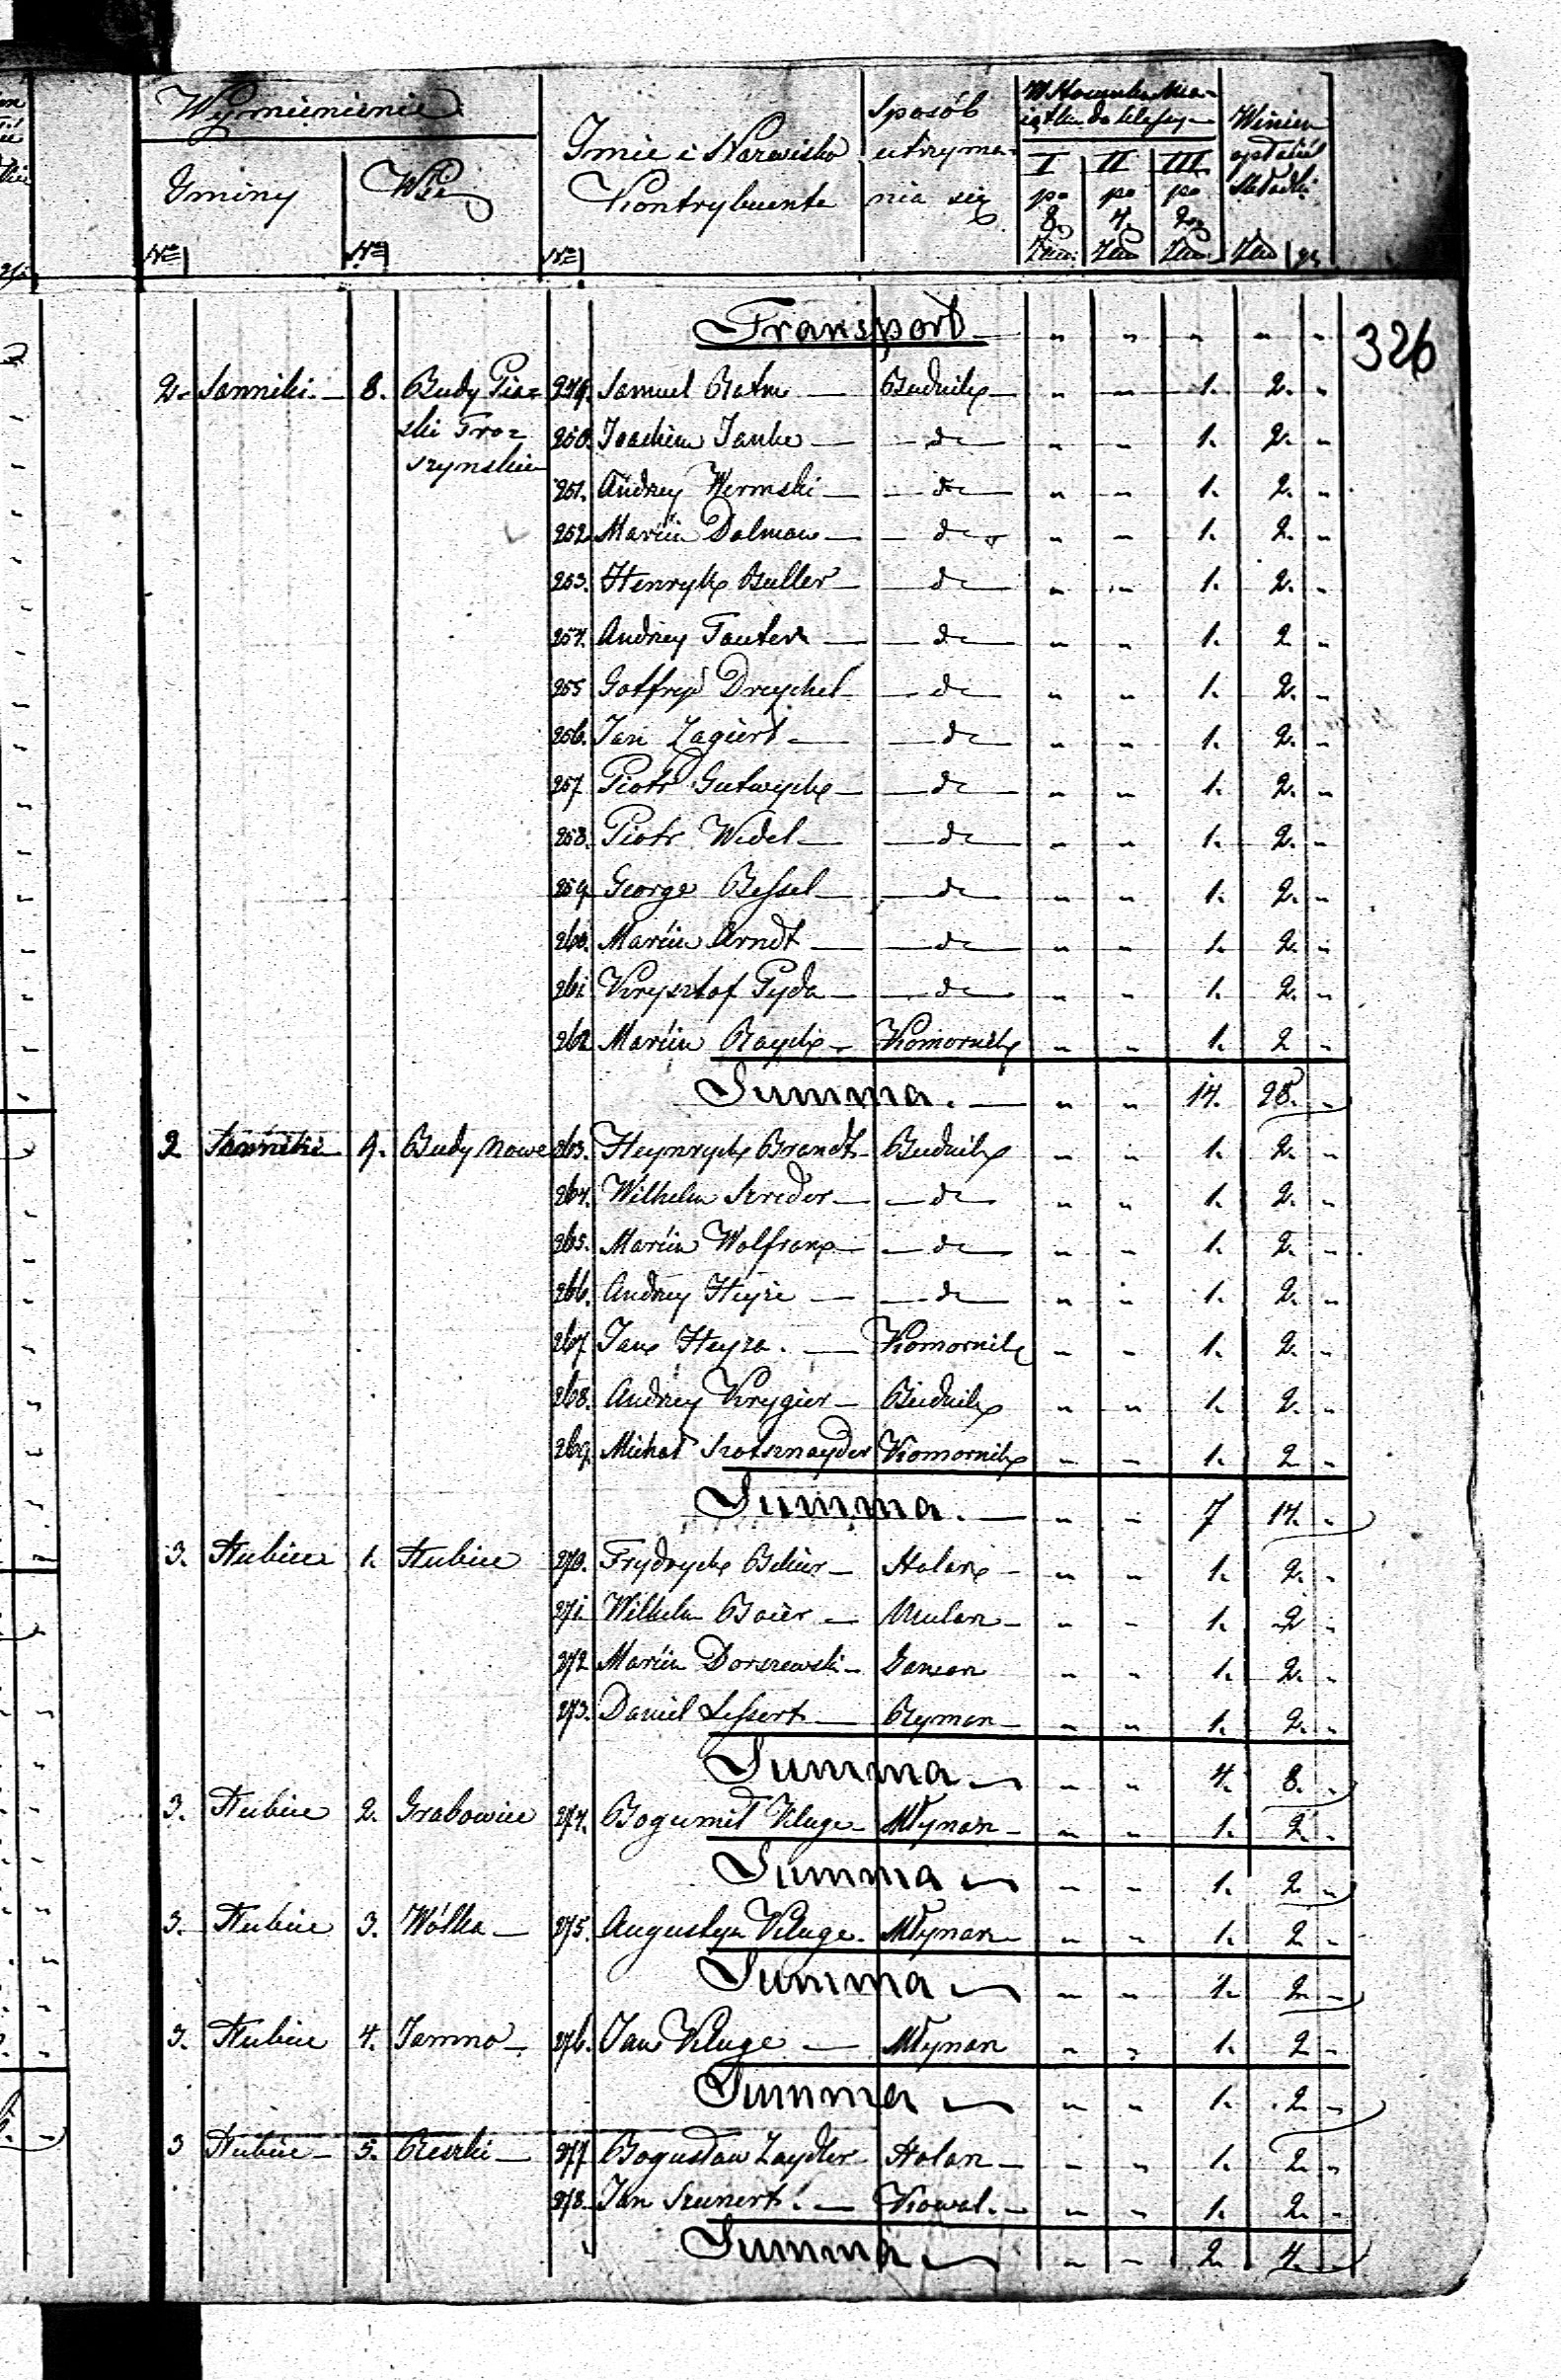 Wymienienie
Gminy
Wsi
Nro
Nro
Imie i Nazwisko
Kontrybuenta
Nro
Sposób
utrzyma-
nia się
W Stosunku Mai-
ątku do klassy
I II III
po po po
8. 4. 2.
Złn Złn Złn
Winien
opłacić
Składki
Złn gr
326
Transport — " " " " "
2. Sanniki — 8. Budy Pias- 249. Samuel Ratm — Budnik — " " 1. 2. "
ski Tro= 250. Joachim Janke — do — " " 1. 2. "
szynskie
251. Andrzy Wermski — do — " " 1. 2. "
252. Marcin Dalman — do — " " 1. 2. "
253. Henryk Buller — do — " " 1. 2. "
254. Andrzey Fauter — do — " " 1. 2 "
255 Gotfryd Dreychel — do — " " 1. 2. "
256. Jan Zagiert — do — " " 1. 2. "
257 Piotr Gutwych — do — " " 1. 2. "
258. Piotr Wedel — do — " " 1. 2. "
259 George Bessel — do — " " 1. 2. "
260. Marcin Arndt — do — " " 1. 2. "
261 Krysztof Pyda — do — " " 1. 2. "
262 Marcin Raych — Komornik " " 1. 2 "
Summa. — " " 14. 28. "
2 Sanniki 9. Budy Nowe 263. Heynrych Brandt — Budnik " " 1. 2. "
264. Wilhelm Szreder — do — " " 1. 2. "
265. Marcin Wolfram — do — " " 1. 2. "
266. Andrzy Heyze — do — " " 1. 2. "
267 Jan Heyza. — Komornik " " 1. 2. "
268. Andrzey Krygier — Budnik " " 1. 2. "
269. Michał Szotsznayder Komornik " " 1. 2 "
Summa. — " " 7 14. "
3. Słubice 1. Słubice 270. Frydrych Bekier — Stolarz — " " 1. 2. "
271 Wilhelm Baier — Mularz — " " 1. 2 "
272 Marcin Dorszewski — Garncarz " " 1. 2. "
273. Daniel Lessert — Rymarz — " " 1. 2. "
Summa — " " 4. 8. "
3. Słubice 2. Grabowiec 274. Bogumił Kluge — Młynarz — " " 1. 2. "
Summa — " " 1. 2 "
3. Słubice 3. Wólka — 275. Augustyn Kluge. Młynarz — " " 1. 2 "
Summa — " " 1. 2 "
3. Słubice 4. Jamno — 276. Jan Kluge — Młynarz " " 1. 2 "
Summa — " " 1. 2 "
3 Słubice — 5. Rzurki — 277 Bogusław Zaydler — Stolarz — " " 1. 2 "
278. Jan Szunert. — Kowal. — " " 1. 2. "
Summa — " " 2. 4. "